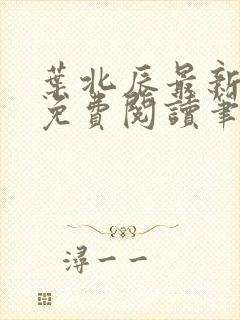 葉北辰最新
免費閱讀筆
潯一一